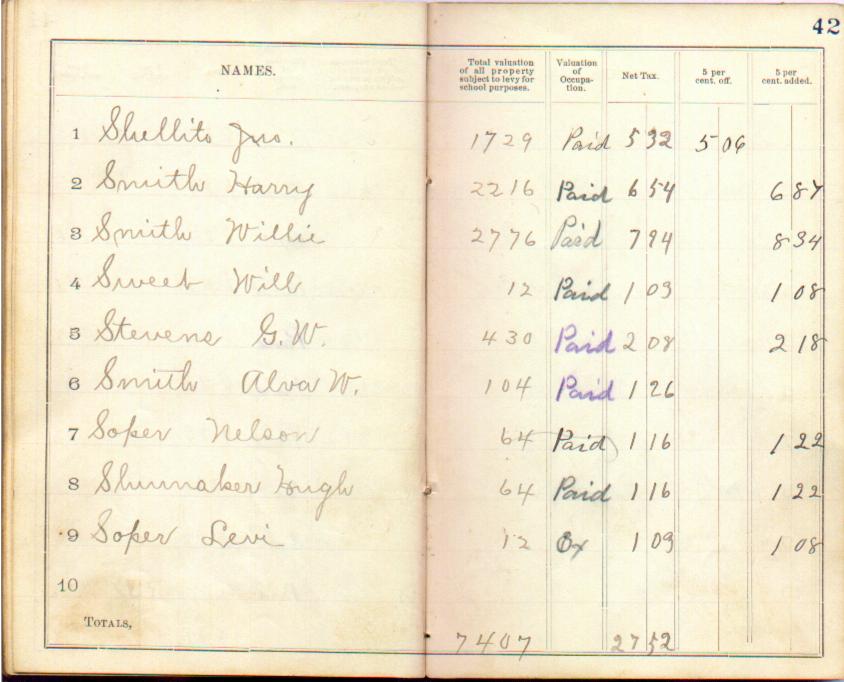 42
NAMES. Total valuation of all property subject to levy for school purposes. Valuation of Occupa-tion. Net Tax. 5 per cent. off. 5 per cent. added.
1 Shellito Jno. 1729 Paid 5 32 5 06
2 Smith Harry 2216 Paid 6 54 6 87
3 Smith Willie 2776 Paid 7 94 8 34
4 Sweet Will 12 Paid 1 03 1 08
5 Stevens G. W. 430 Paid 2 08 2 18
6 Smith Alva W. 104 Paid 1 26
7 Soper Nelson 64 Paid 1 16 1 22
8 Shumaker Hugh 64 Paid 1 16 1 22
9 Soper Levi 12 Ox 1 03 1 08
10
TOTALS, 7407 27 52